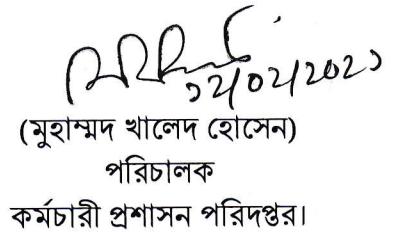 ১২/০২/২০২১
(মুহাম্মদ খালেদ হোসেন)
পরিচালক
কর্মচারী প্রশাসন পরিদপ্তর।